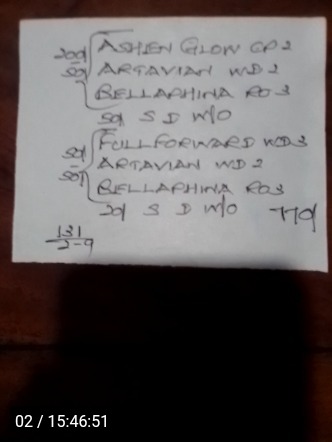 20d/ ASHEN GLOW CP2
50d/ ARTAVIAN WD2
BELLAPHINA RO3
50d/ S D W/O
50d/ FULLFORWARD WD3
50d/ ARTAVIAN WD2
BELLAPHINA RO3
20d/ S D W/O 770/
131
2-9
02 / 15:46:51